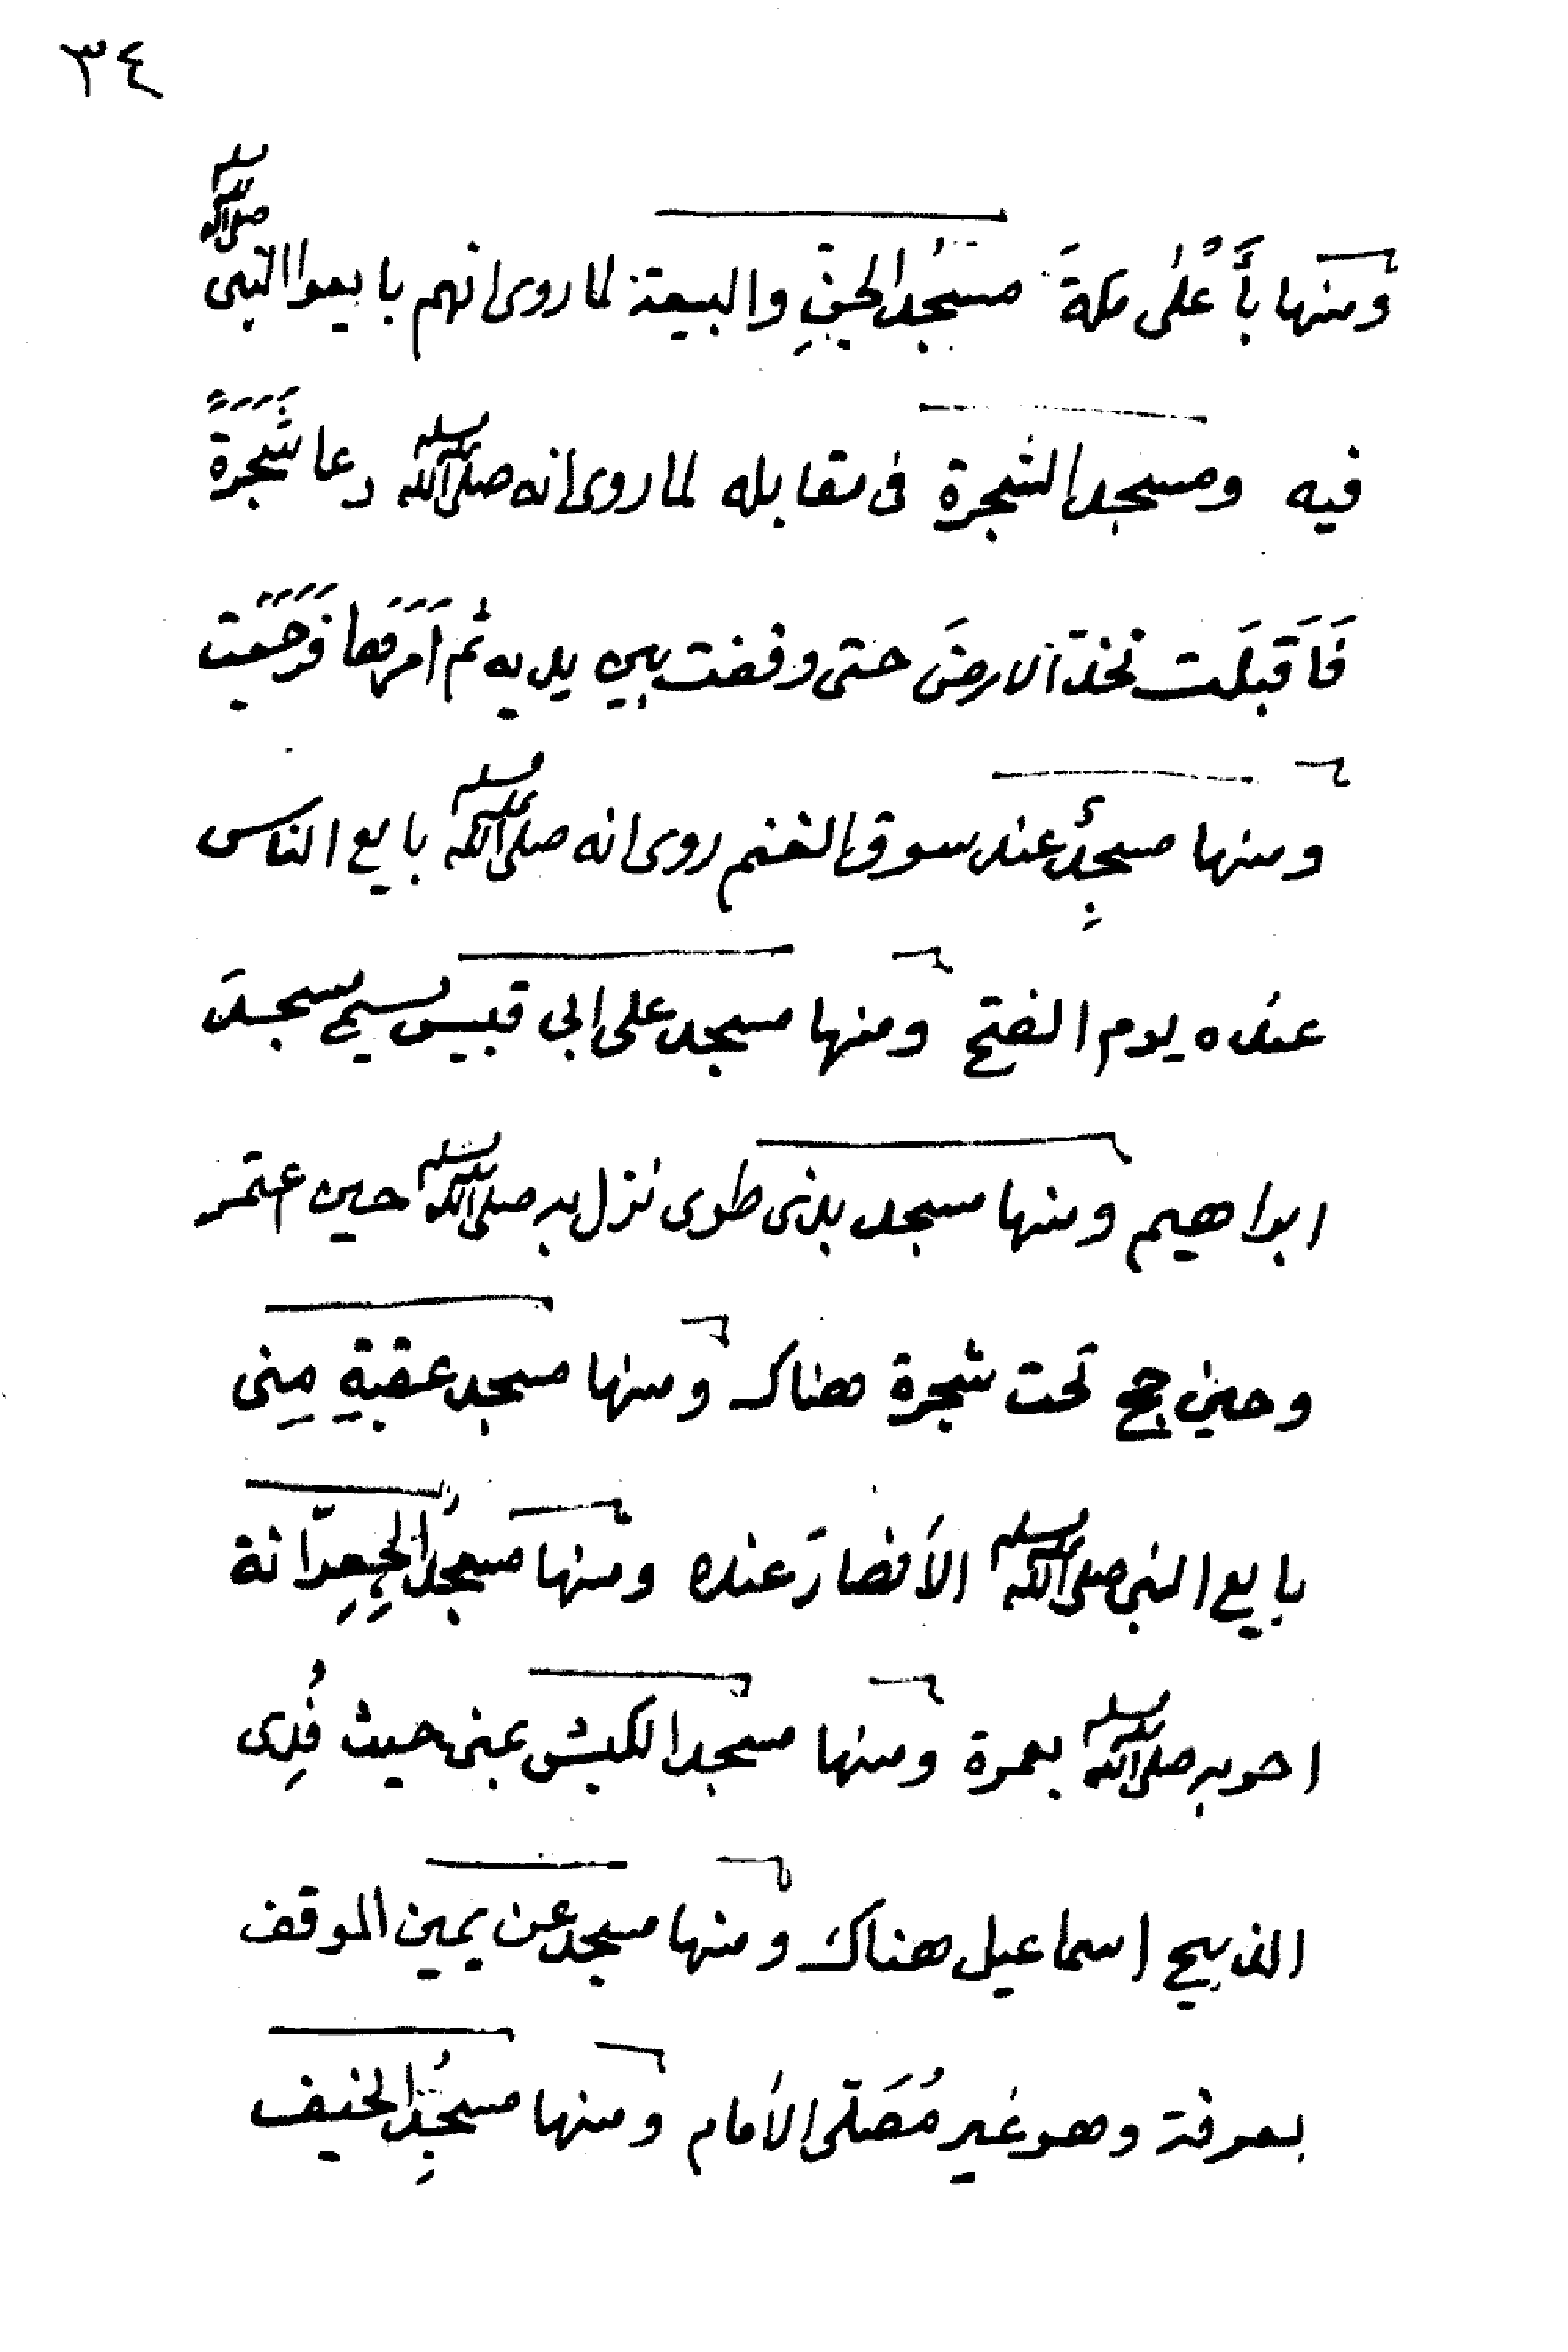 ٣٤
ومنها بأَعْلى مكةَ مسجُد الجنِّ والبيعة لما روى انهم بايعوا النبى صلى الله عليه وسلم
فيه ومسجد الشجرة فى مقابله لما روى انه صلى الله عليه وسلم دعا شَجَرَةً
فَاَقبَلَت تخدّ الارضَ حتى وقفت بين يديه ثم اَمَرَها فَرَجَعَت
ومنها مسجِدٌ عند سوق الغنم روى انه صلى الله عليه وسلم بايع الناس
عنده يوم الفتح ومنها مسجد على ابى قبيس يسمى مسجدَ
ابراهيم ومنها مسجد بذى طوى نزل به صلى الله عليه وسلم حين اعتمر
وحين حج تحت شجرة هناك ومنها مسجد عقبةِ مِنى
بايع النبى صلى الله عليه وسلم الأنصارَ عنده ومنها مسجدُ الجِعِرّانة
احرم صلى الله عليه وسلم بعمرة ومنها مسجد الكبش بمنى حيث فُدِى
الذبيح اسماعيل هناك ومنها مسجد عن يمين الموقف
بعرفة وهو غير مُصَلّى الأمام ومنها مسجِدُ الخيف